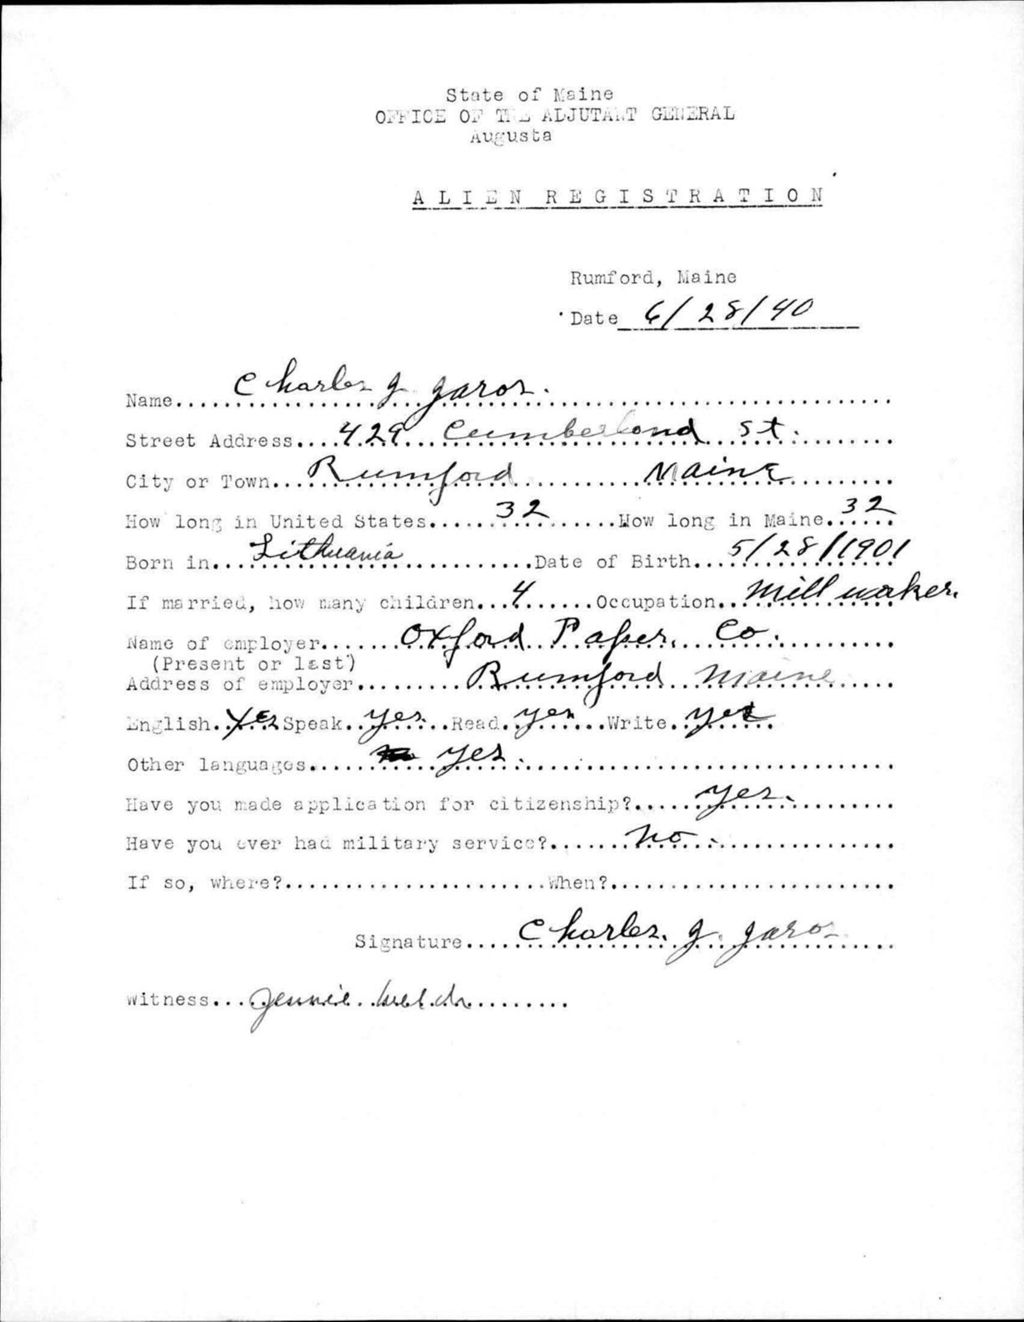 State of Maine
OFFICE OF THE ADJUTANT GENERAL
Augusta
ALIEN REGISTRATION
Rumford, Maine
Date 6/28/40
Name.....Charles J. Jaros.....
Street Address....429 Cumberland St.....
City or Town...Rumford.....Maine.....
How long in United States.....32.....How long in Maine...32...
Born in...Lithuania.....Date of Birth...5/28/1901
If married, how many children...4......Occupation..Mill worker.
Name of employer.....Oxford Paper Co.....
(Present or last)
Address of employer.....Rumford Maine.....
English. Yes Speak..yes...Read.yes...Write..yes
Other languages.....yes.....
Have you made application for citizenship?.....yes.....
Have you ever had military service?.....no.....
If so, where?.....When?.....
Signature....Charles. J. Jaros....
Witness...Jennie Welch.....